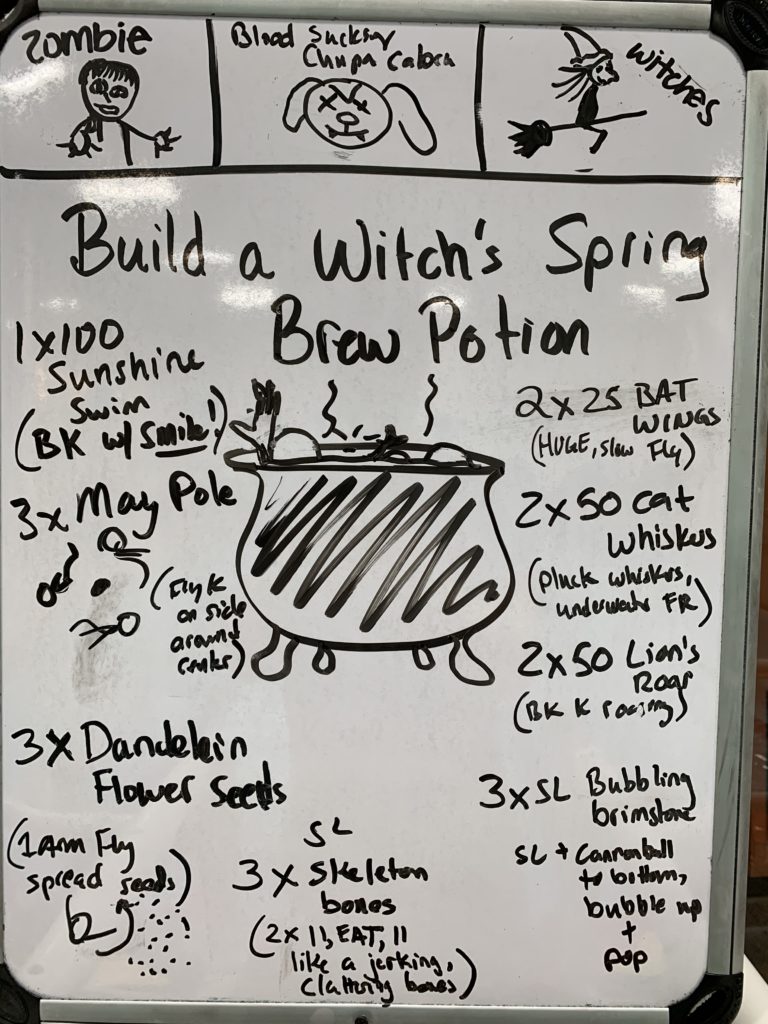 Zombie
Blood Sucking
Chupa Cabra
Witches
Build a Witch's Spring
Brew Potion
1x100
Sunshine
Swim
(BK w/ Smile!)
3x May Pole
(Fly K
on side
around
center)
3x Dandelein
Flower Seeds
(1 Arm Fly
spread seeds)
SL
3x Skeleton
bones
(2x 11, EAT, 11
like a jerking,
clattering bones)
2x25 BAT
WINGS
(HUGE, slow Fly)
2x50 Cat
Whiskers
(pluck whiskers,
underwater FR)
2x50 Lion's
Roar
(BK K roaring)
3xSL Bubbling
brimstone
SL + Cannonball
to bottom,
bubble up
+
pop